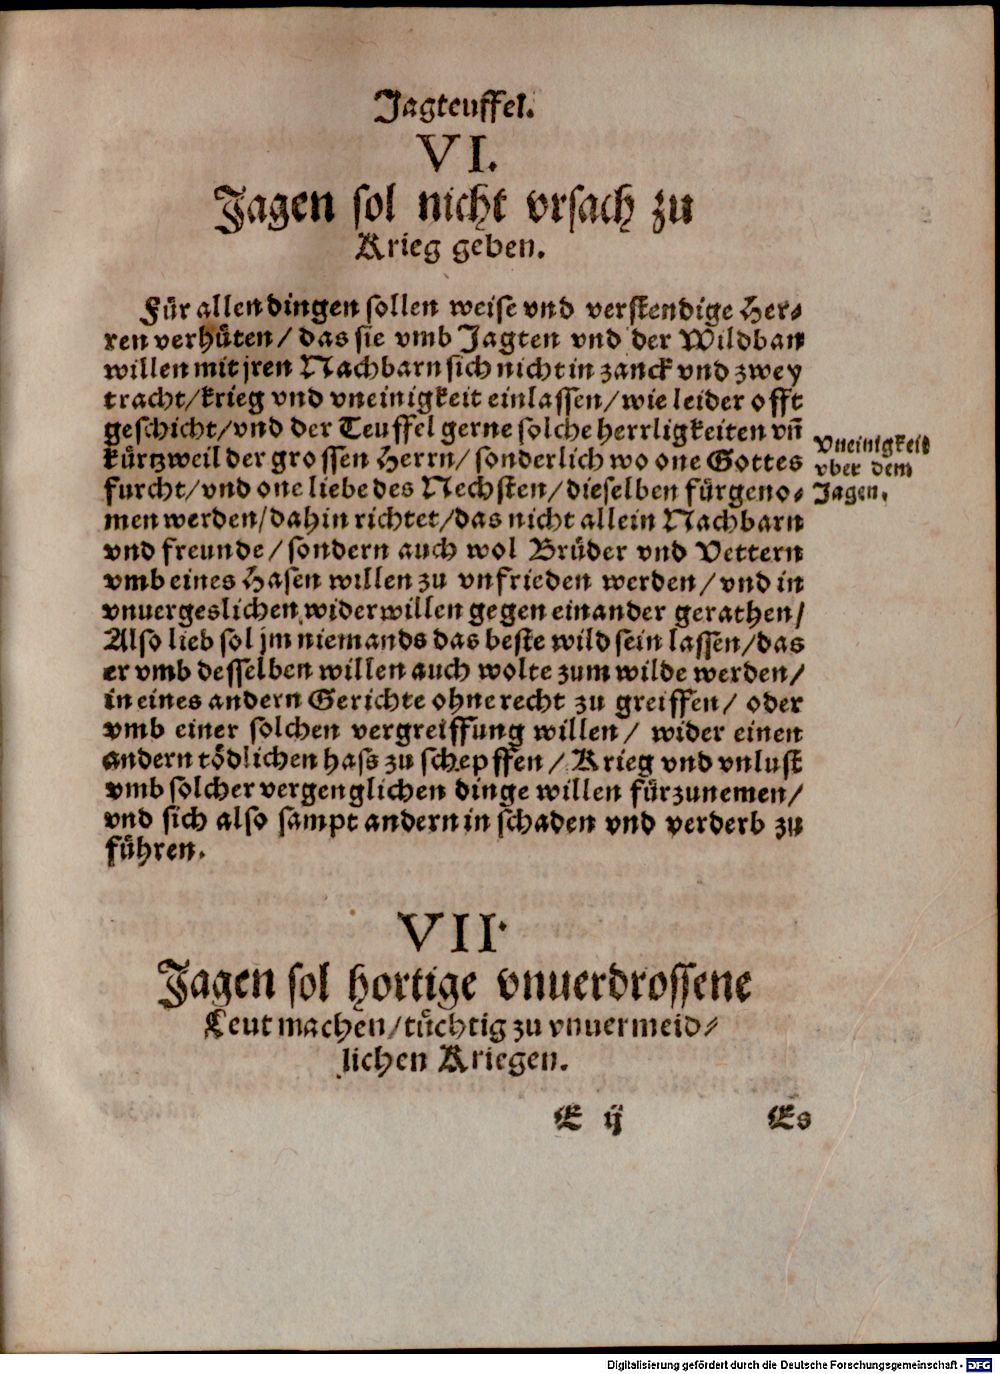 Jagteuffel.
VI.
Jagen sol nicht vrsach zu
Krieg geben.
Für allen dingen sollen weise vnd verstendige Her⸗
ren verhüten/ das sie vmb Jagten vnd der Wildban
willen mit jren Nachbarn sich nicht in zanck vnd zwey
tracht/krieg vnd vneinigkeit einlassen/wie leider offt
geschicht/vnd der Teuffel gerne solche herrligkeiten vñ
kürtzweil der grossen Herrn/ sonderlich wo one Gottes
furcht/vnd one liebe des Nechsten/dieselben fürgeno⸗
men werden/dahin richtet/das nicht allein Nachbarn
vnd freunde/ sondern auch wol Brüder vnd Vettern
vmb eines Hasen willen zu vnfrieden werden/ vnd in
vnuergeslichen widerwillen gegen einander gerathen/
Also lieb sol jm niemands das beste wild sein lassen/das
er vmb desselben willen auch wolte zum wilde werden/
in eines andern Gerichte ohne recht zu greiffen/ oder
vmb einer solchen vergreiffung willen/ wider einen
andern tödlichen hass zu schepffen/ Krieg vnd vnlust
vmb solcher vergenglichen dinge willen fürzunemen/
vnd sich also sampt andern in schaden vnd verderb zu
führen.
Vneinigkeit
vber dem
Jagen.
VII.
Jagen sol hortige vnuerdrossene
Leut machen/tüchtig zu vnuermeid⸗
lichen Kriegen.
E ij Es
Digitalisierung gefördert durch die Deutsche Forschungsgemeinschaft - DFG